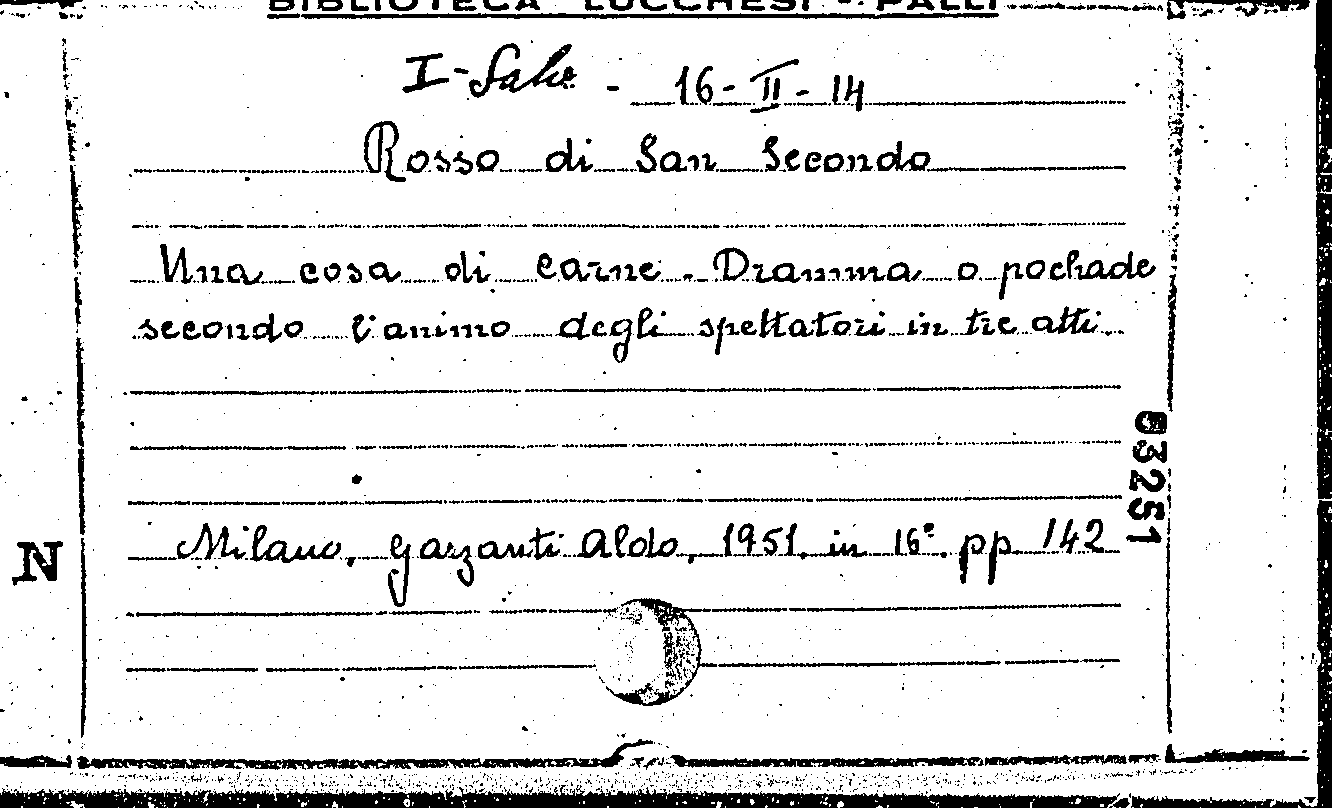 BIBLIOTECA LUCCHESI - PALLI
I-Sala - 16-II-14
Rosso di San Secondo
Una cosa di carne. Dramma o pochade
secondo l'animo degli spettatori in tre atti.
03251
N
Milano, Garzanti Aldo, 1951. in 16°. pp. 142